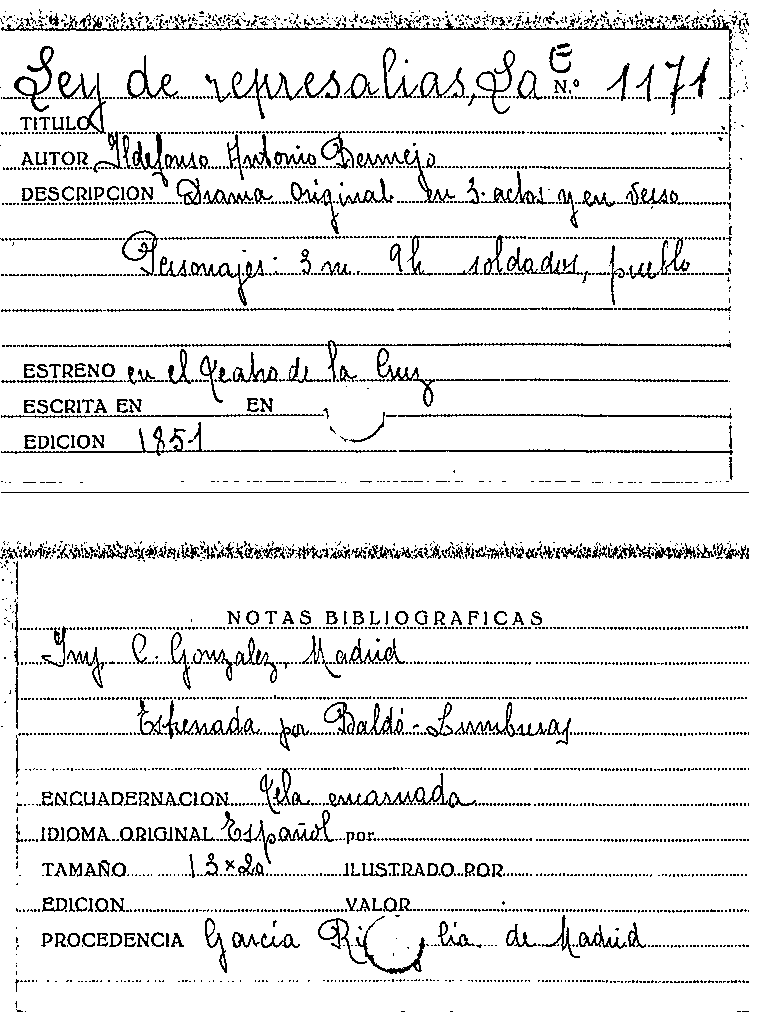 Ley de represalias, La E N.º 1171
TITULO
AUTOR Ildefonso Antonio Bermejo
DESCRIPCION Drama original en 3 actos y en verso
Personajes: 3 m. 9 h. soldados, pueblo
ESTRENO en el Teatro de la Cruz
ESCRITA EN EN
EDICION 1851
NOTAS BIBLIOGRAFICAS
Imp. C. Gonzalez, Madrid
Estrenada por Baldó-Lumbreras
ENCUADERNACION Tela encarnada
IDIOMA ORIGINAL Español por
TAMAÑO 13×20 ILUSTRADO POR
EDICION VALOR
PROCEDENCIA García de Madrid